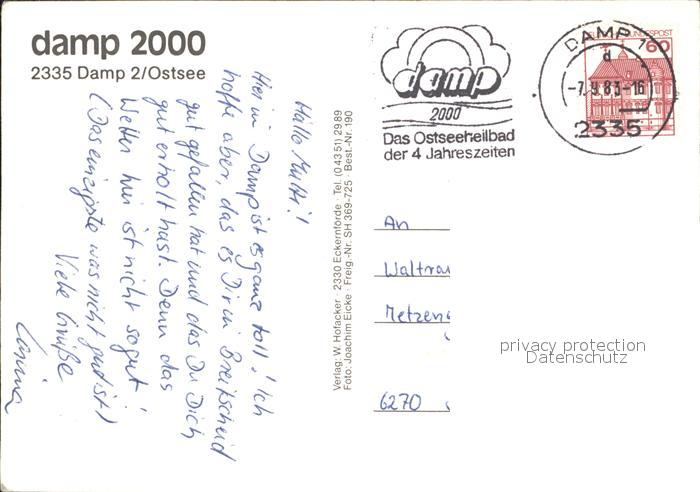 damp 2000
2335 Damp 2/Ostsee
Hallo Mutti!
Hier in Damp ist es ganz toll! Ich
hoffe aber, das es Dir in Breitscheid
gut gefallen hat und das Du Dich
gut erholt hast. Denn das
Wetter hier ist nicht so gut!
(Das einzigste was nicht gut ist!)
Viele Grüße
Verlag: W. Hofacker · 2330 Eckernförde · Tel. (0 43 51) 29 89
Foto: Joachim Eicke · Freig.-Nr. SH 369-725 · Best.-Nr. 190
damp
2000
Das Ostseeheilbad
der 4 Jahreszeiten
DAMP 1
d
-7.9.83-16
2335
BUNDESPOST
60
An
Waltrau
Metzen
6270
privacy protection
Datenschutz